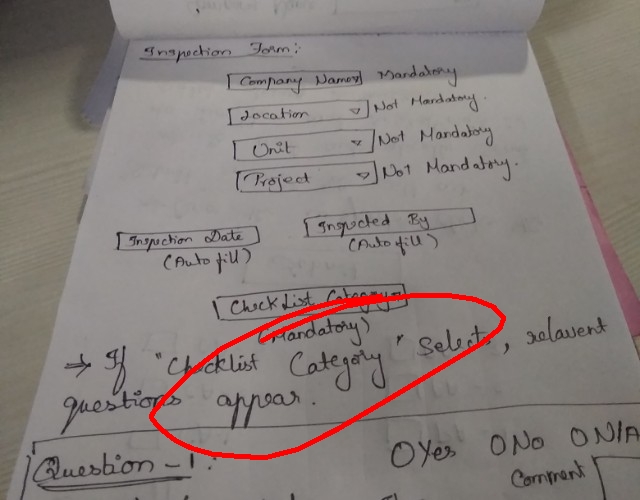 Inspection Form:
Company Name Mandatory
Location Not Mandatory.
Unit Not Mandatory
Project Not Mandatory.
Inspection Date Inspected By
(Auto fill) (Auto fill)
CheckList Category
(Mandatory)
⇒ If "Checklist Category" Selects, relavent
questions appear.
Question - 1: O Yes O No O N/A
Comment